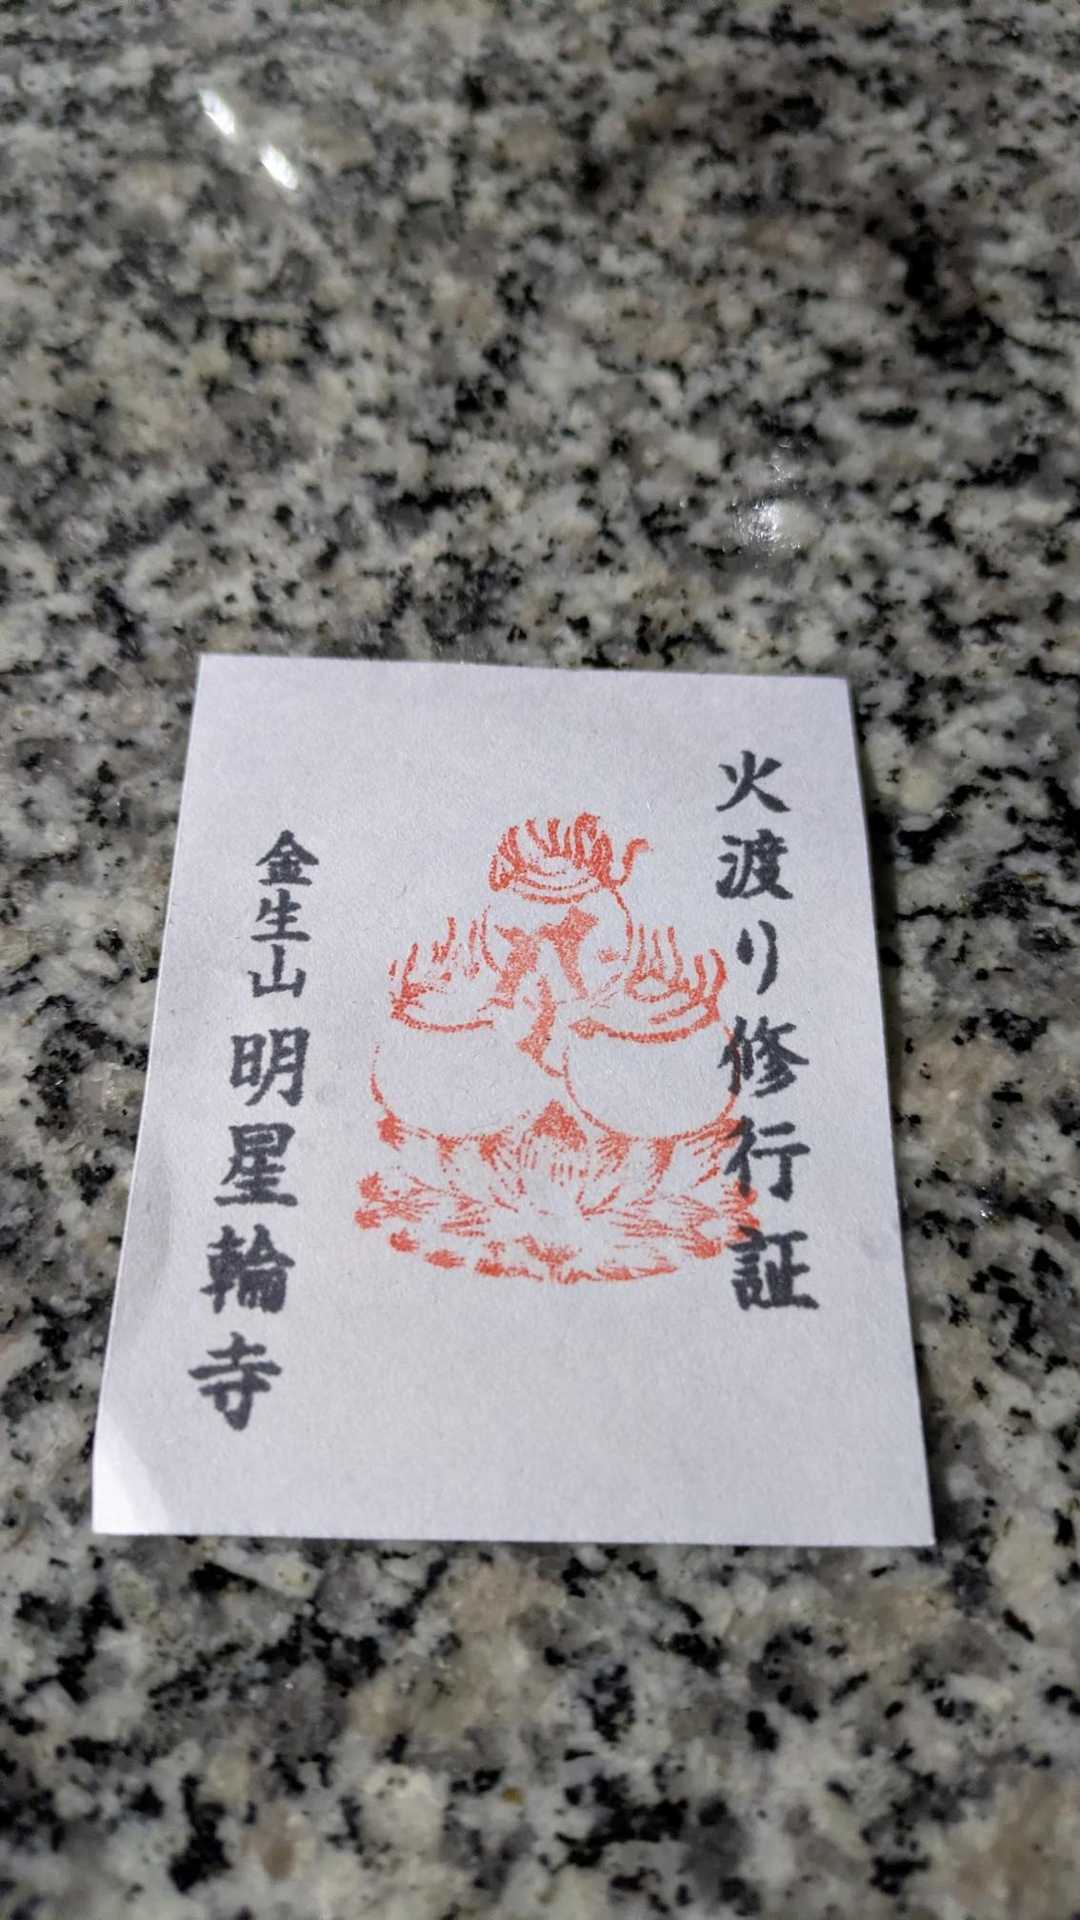 火渡り修行証
金生山 明星輪寺